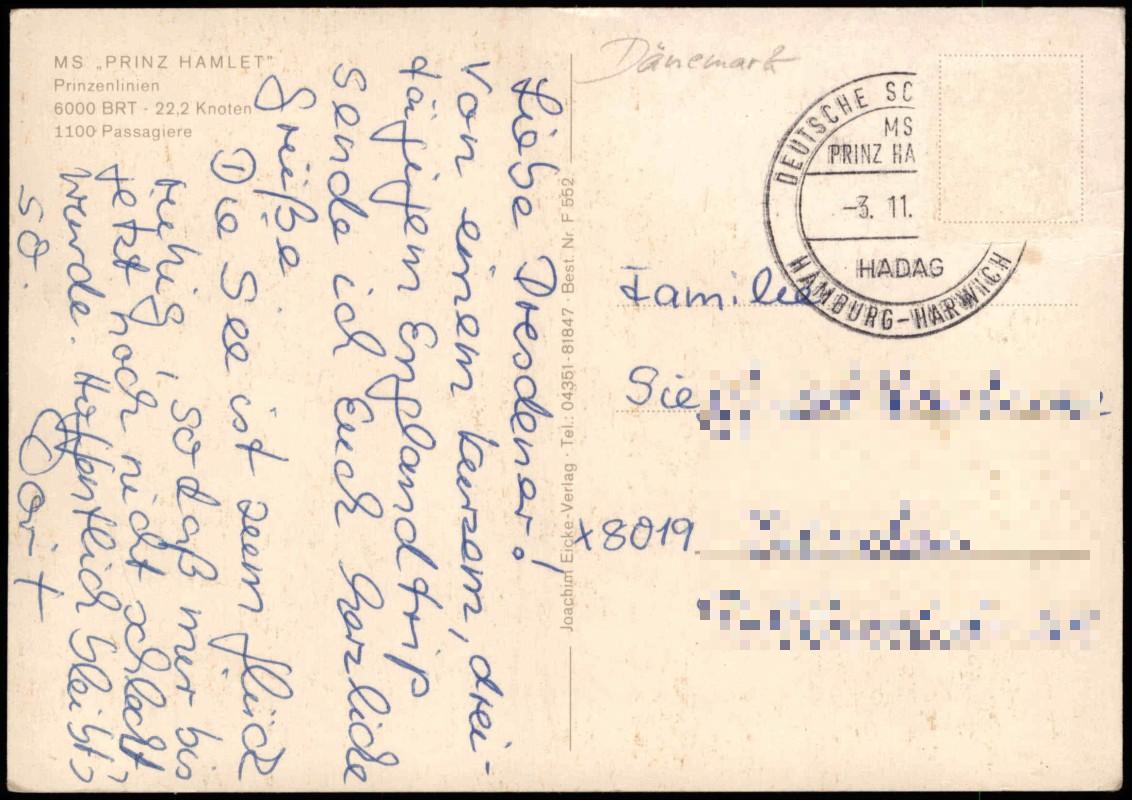 MS „PRINZ HAMLET"
Prinzenlinien
6000 BRT - 22,2 Knoten
1100 Passagiere
Liebe Dresdener!
Von einem kurzem, drei-
tägigem Englandtrip
sende ich Euch herzliche
Grüße.
Die See ist zum Glück
ruhig, sodaß mir bis
jetzt noch nicht schlecht
wurde. Hoffentlich bleibt's
so.
Joachim Eicke-Verlag · Tel.: 04351-81847 · Best. Nr. F 552
Dänemark
DEUTSCHE SC
MS
PRINZ HA
-3. 11.
HADAG
HAMBURG-HARWICH
Familie
Sie
x8019